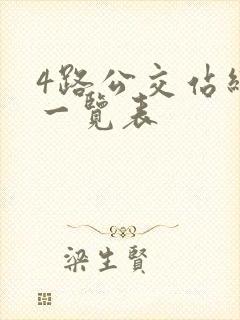 4路公交佔線
一覽表
梁生賢